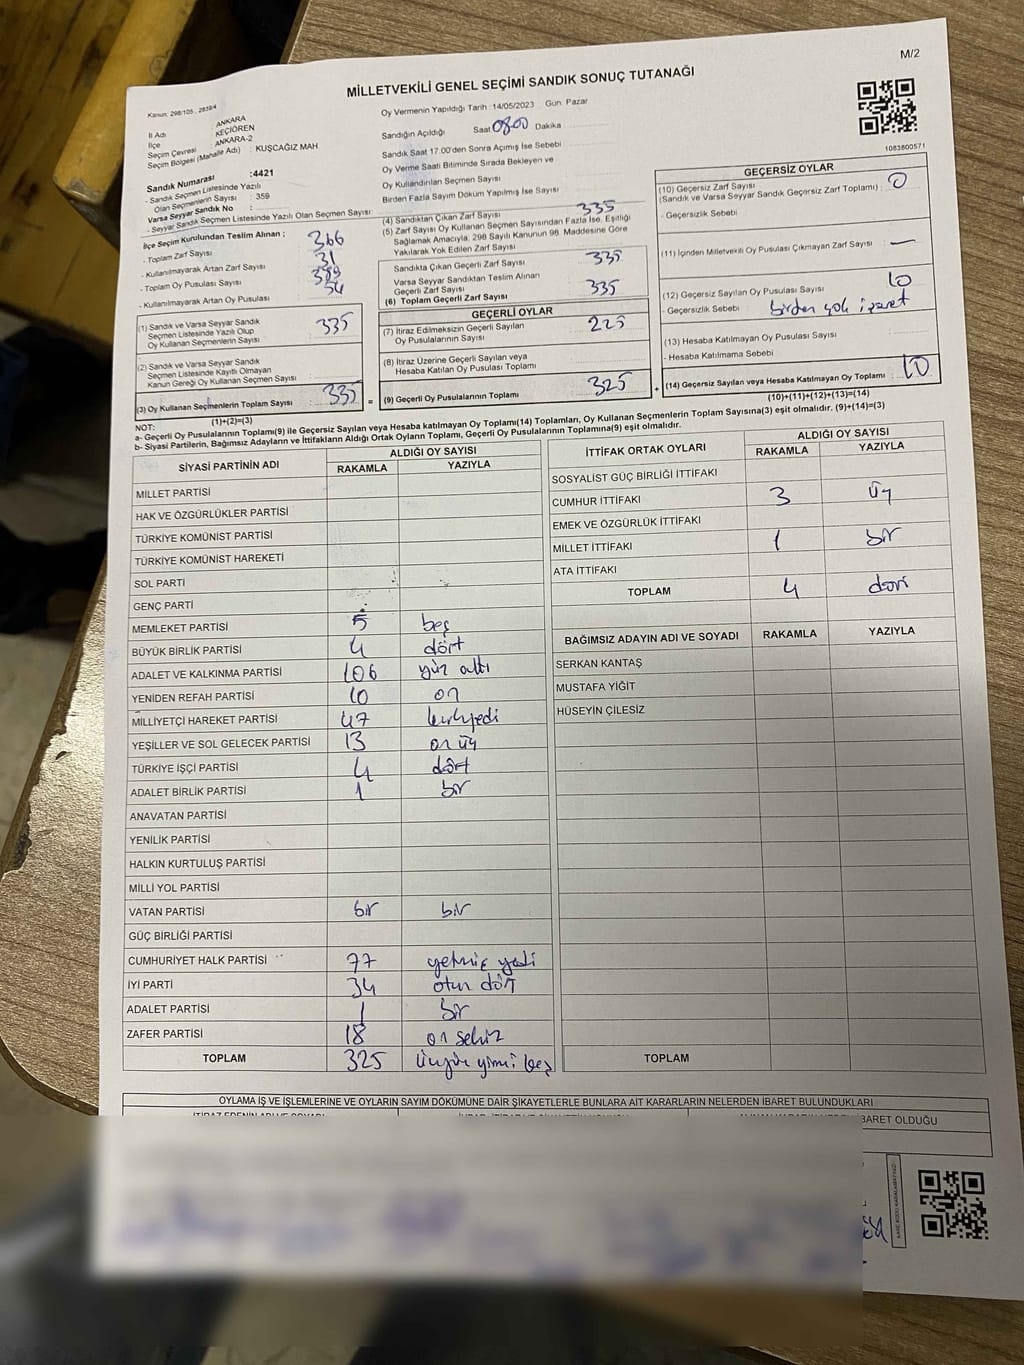 M/2
MİLLETVEKİLİ GENEL SEÇİMİ SANDIK SONUÇ TUTANAĞI
Kanun: 298/105, 2839/4
İl Adı : ANKARA
İlçe : KEÇİÖREN
Seçim Çevresi : ANKARA-2
Seçim Bölgesi (Mahalle Adı) : KUŞCAĞIZ MAH
Sandık Numarası :4421
- Sandık Seçmen Listesinde Yazılı
Olan Seçmenlerin Sayısı : 359
Varsa Seyyar Sandık No :
- Seyyar Sandık Seçmen Listesinde Yazılı Olan Seçmen Sayısı:
İlçe Seçim Kurulundan Teslim Alınan ;
- Toplam Zarf Sayısı : 366
- Kullanılmayarak Artan Zarf Sayısı : 31
- Toplam Oy Pusulası Sayısı : 389
- Kullanılmayarak Artan Oy Pusulası : 54
(1) Sandık ve Varsa Seyyar Sandık
Seçmen Listesinde Yazılı Olup
Oy Kullanan Seçmenlerin Sayısı : 335
(2) Sandık ve Varsa Seyyar Sandık
Seçmen Listesinde Kayıtlı Olmayan
Kanun Gereği Oy Kullanan Seçmen Sayısı :
(3) Oy Kullanan Seçmenlerin Toplam Sayısı : 335
(1)+(2)=(3)
Oy Vermenin Yapıldığı Tarih :14/05/2023 Gün: Pazar
Sandığın Açıldığı Saat 0800 Dakika
Sandık Saat 17:00'den Sonra Açımış İse Sebebi
Oy Verme Saati Bitiminde Sırada Bekleyen ve
Oy Kullandırılan Seçmen Sayısı
Birden Fazla Sayım Döküm Yapılmış İse Sayısı
(4) Sandıktan Çıkan Zarf Sayısı 335
(5) Zarf Sayısı Oy Kullanan Seçmen Sayısından Fazla İse, Eşitliği
Sağlamak Amacıyla, 298 Sayılı Kanunun 98. Maddesine Göre
Yakılarak Yok Edilen Zarf Sayısı
Sandıkta Çıkan Geçerli Zarf Sayısı 335
Varsa Seyyar Sandıktan Teslim Alınan
Geçerli Zarf Sayısı
(6) Toplam Geçerli Zarf Sayısı 335
GEÇERLİ OYLAR
(7) İtiraz Edilmeksizin Geçerli Sayılan
Oy Pusulalarının Sayısı : 225
(8) İtiraz Üzerine Geçerli Sayılan veya
Hesaba Katılan Oy Pusulası Toplamı
= (9) Geçerli Oy Pusulalarının Toplamı 325 +
1083800571
GEÇERSİZ OYLAR
(10) Geçersiz Zarf Sayısı
(Sandık ve Varsa Seyyar Sandık Geçersiz Zarf Toplamı) : 0
- Geçersizlik Sebebi
(11) İçinden Milletvekili Oy Pusulası Çıkmayan Zarf Sayısı : —
(12) Geçersiz Sayılan Oy Pusulası Sayısı : 10
- Geçersizlik Sebebi birden çok işaret
(13) Hesaba Katılmayan Oy Pusulası Sayısı
- Hesaba Katılmama Sebebi
(14) Geçersiz Sayılan veya Hesaba Katılmayan Oy Toplamı : 10
(10)+(11)+(12)+(13)=(14)
NOT:
a- Geçerli Oy Pusulalarının Toplamı(9) ile Geçersiz Sayılan veya Hesaba katılmayan Oy Toplamı(14) Toplamları, Oy Kullanan Seçmenlerin Toplam Sayısına(3) eşit olmalıdır. (9)+(14)=(3)
b- Siyasi Partilerin, Bağımsız Adayların ve İttifakların Aldığı Ortak Oyların Toplamı, Geçerli Oy Pusulalarının Toplamına(9) eşit olmalıdır.
SİYASİ PARTİNİN ADI ALDIĞI OY SAYISI
RAKAMLA YAZIYLA
MİLLET PARTİSİ
HAK VE ÖZGÜRLÜKLER PARTİSİ
TÜRKİYE KOMÜNİST PARTİSİ
TÜRKİYE KOMÜNİST HAREKETİ
SOL PARTİ
GENÇ PARTİ
MEMLEKET PARTİSİ 5 beş
BÜYÜK BİRLİK PARTİSİ 4 dört
ADALET VE KALKINMA PARTİSİ 106 yüz altı
YENİDEN REFAH PARTİSİ 10 on
MİLLİYETÇİ HAREKET PARTİSİ 47 kırkyedi
YEŞİLLER VE SOL GELECEK PARTİSİ 13 on üç
TÜRKİYE İŞÇİ PARTİSİ 4 dört
ADALET BİRLİK PARTİSİ 1 bir
ANAVATAN PARTİSİ
YENİLİK PARTİSİ
HALKIN KURTULUŞ PARTİSİ
MİLLİ YOL PARTİSİ
VATAN PARTİSİ bir bir
GÜÇ BİRLİĞİ PARTİSİ
CUMHURİYET HALK PARTİSİ 77 yetmiş yedi
İYİ PARTİ 34 otuz dört
ADALET PARTİSİ 1 bir
ZAFER PARTİSİ 18 on sekiz
TOPLAM 325 üçyüz yirmi beş
İTTİFAK ORTAK OYLARI ALDIĞI OY SAYISI
RAKAMLA YAZIYLA
SOSYALİST GÜÇ BİRLİĞİ İTTİFAKI
CUMHUR İTTİFAKI 3 üç
EMEK VE ÖZGÜRLÜK İTTİFAKI
MİLLET İTTİFAKI 1 bir
ATA İTTİFAKI
TOPLAM 4 dört
BAĞIMSIZ ADAYIN ADI VE SOYADI RAKAMLA YAZIYLA
SERKAN KANTAŞ
MUSTAFA YİĞİT
HÜSEYİN ÇİLESİZ
TOPLAM
OYLAMA İŞ VE İŞLEMLERİNE VE OYLARIN SAYIM DÖKÜMÜNE DAİR ŞİKAYETLERLE BUNLARA AİT KARARLARIN NELERDEN İBARET BULUNDUKLARI
BARET OLDUĞU